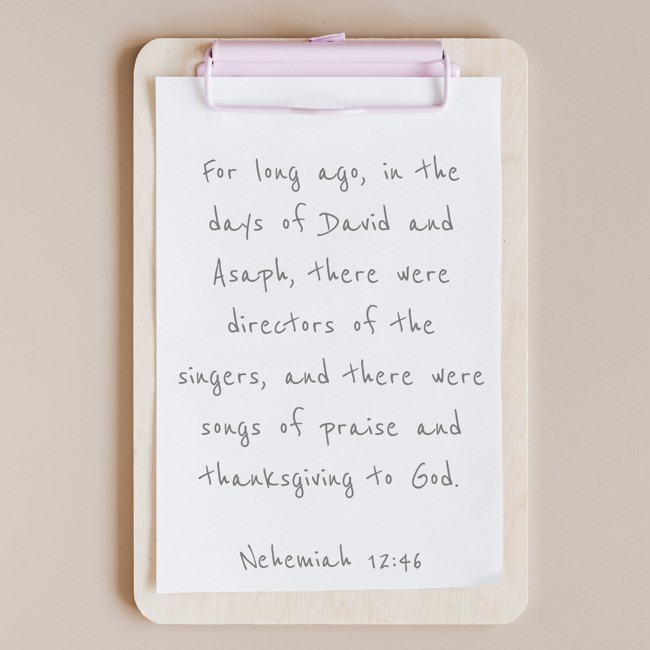 For long ago, in the
days of David and
Asaph, there were
directors of the
singers, and there were
songs of praise and
thanksgiving to God.
Nehemiah 12:46